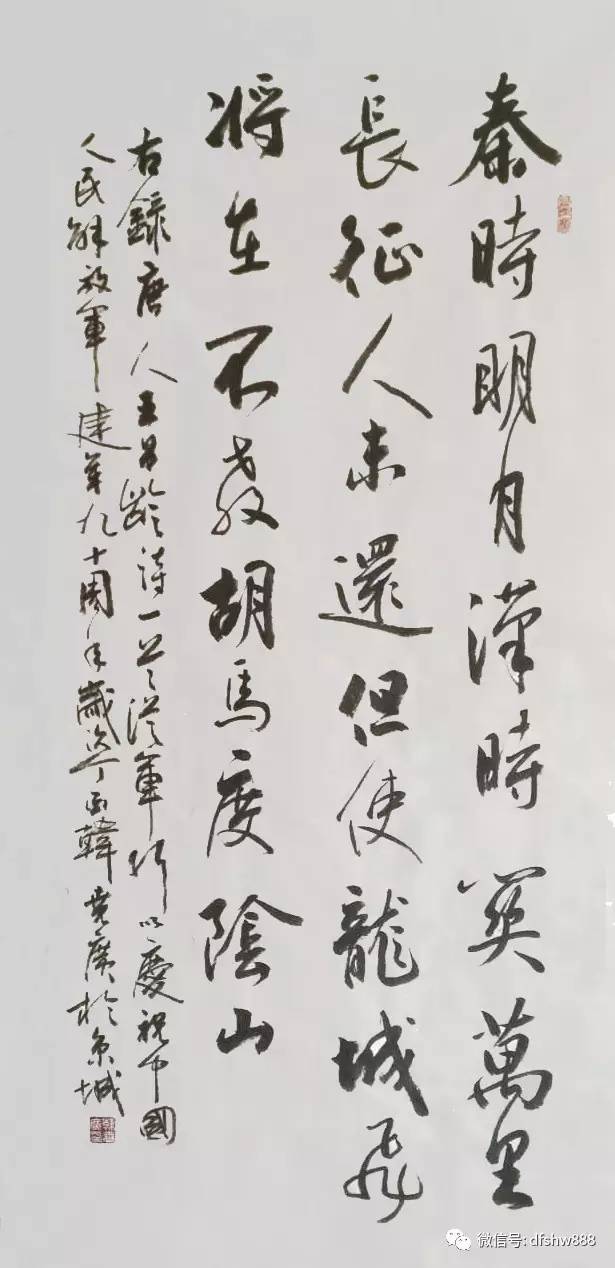 秦時明月漢時關萬里
長征人未還但使龍城飛
將在不教胡馬度陰山
右錄唐人王昌齡詩一首從軍行以慶祝中國
人民解放軍建軍九十周年歲次丁酉韓廣於京城
微信号: dfshw888